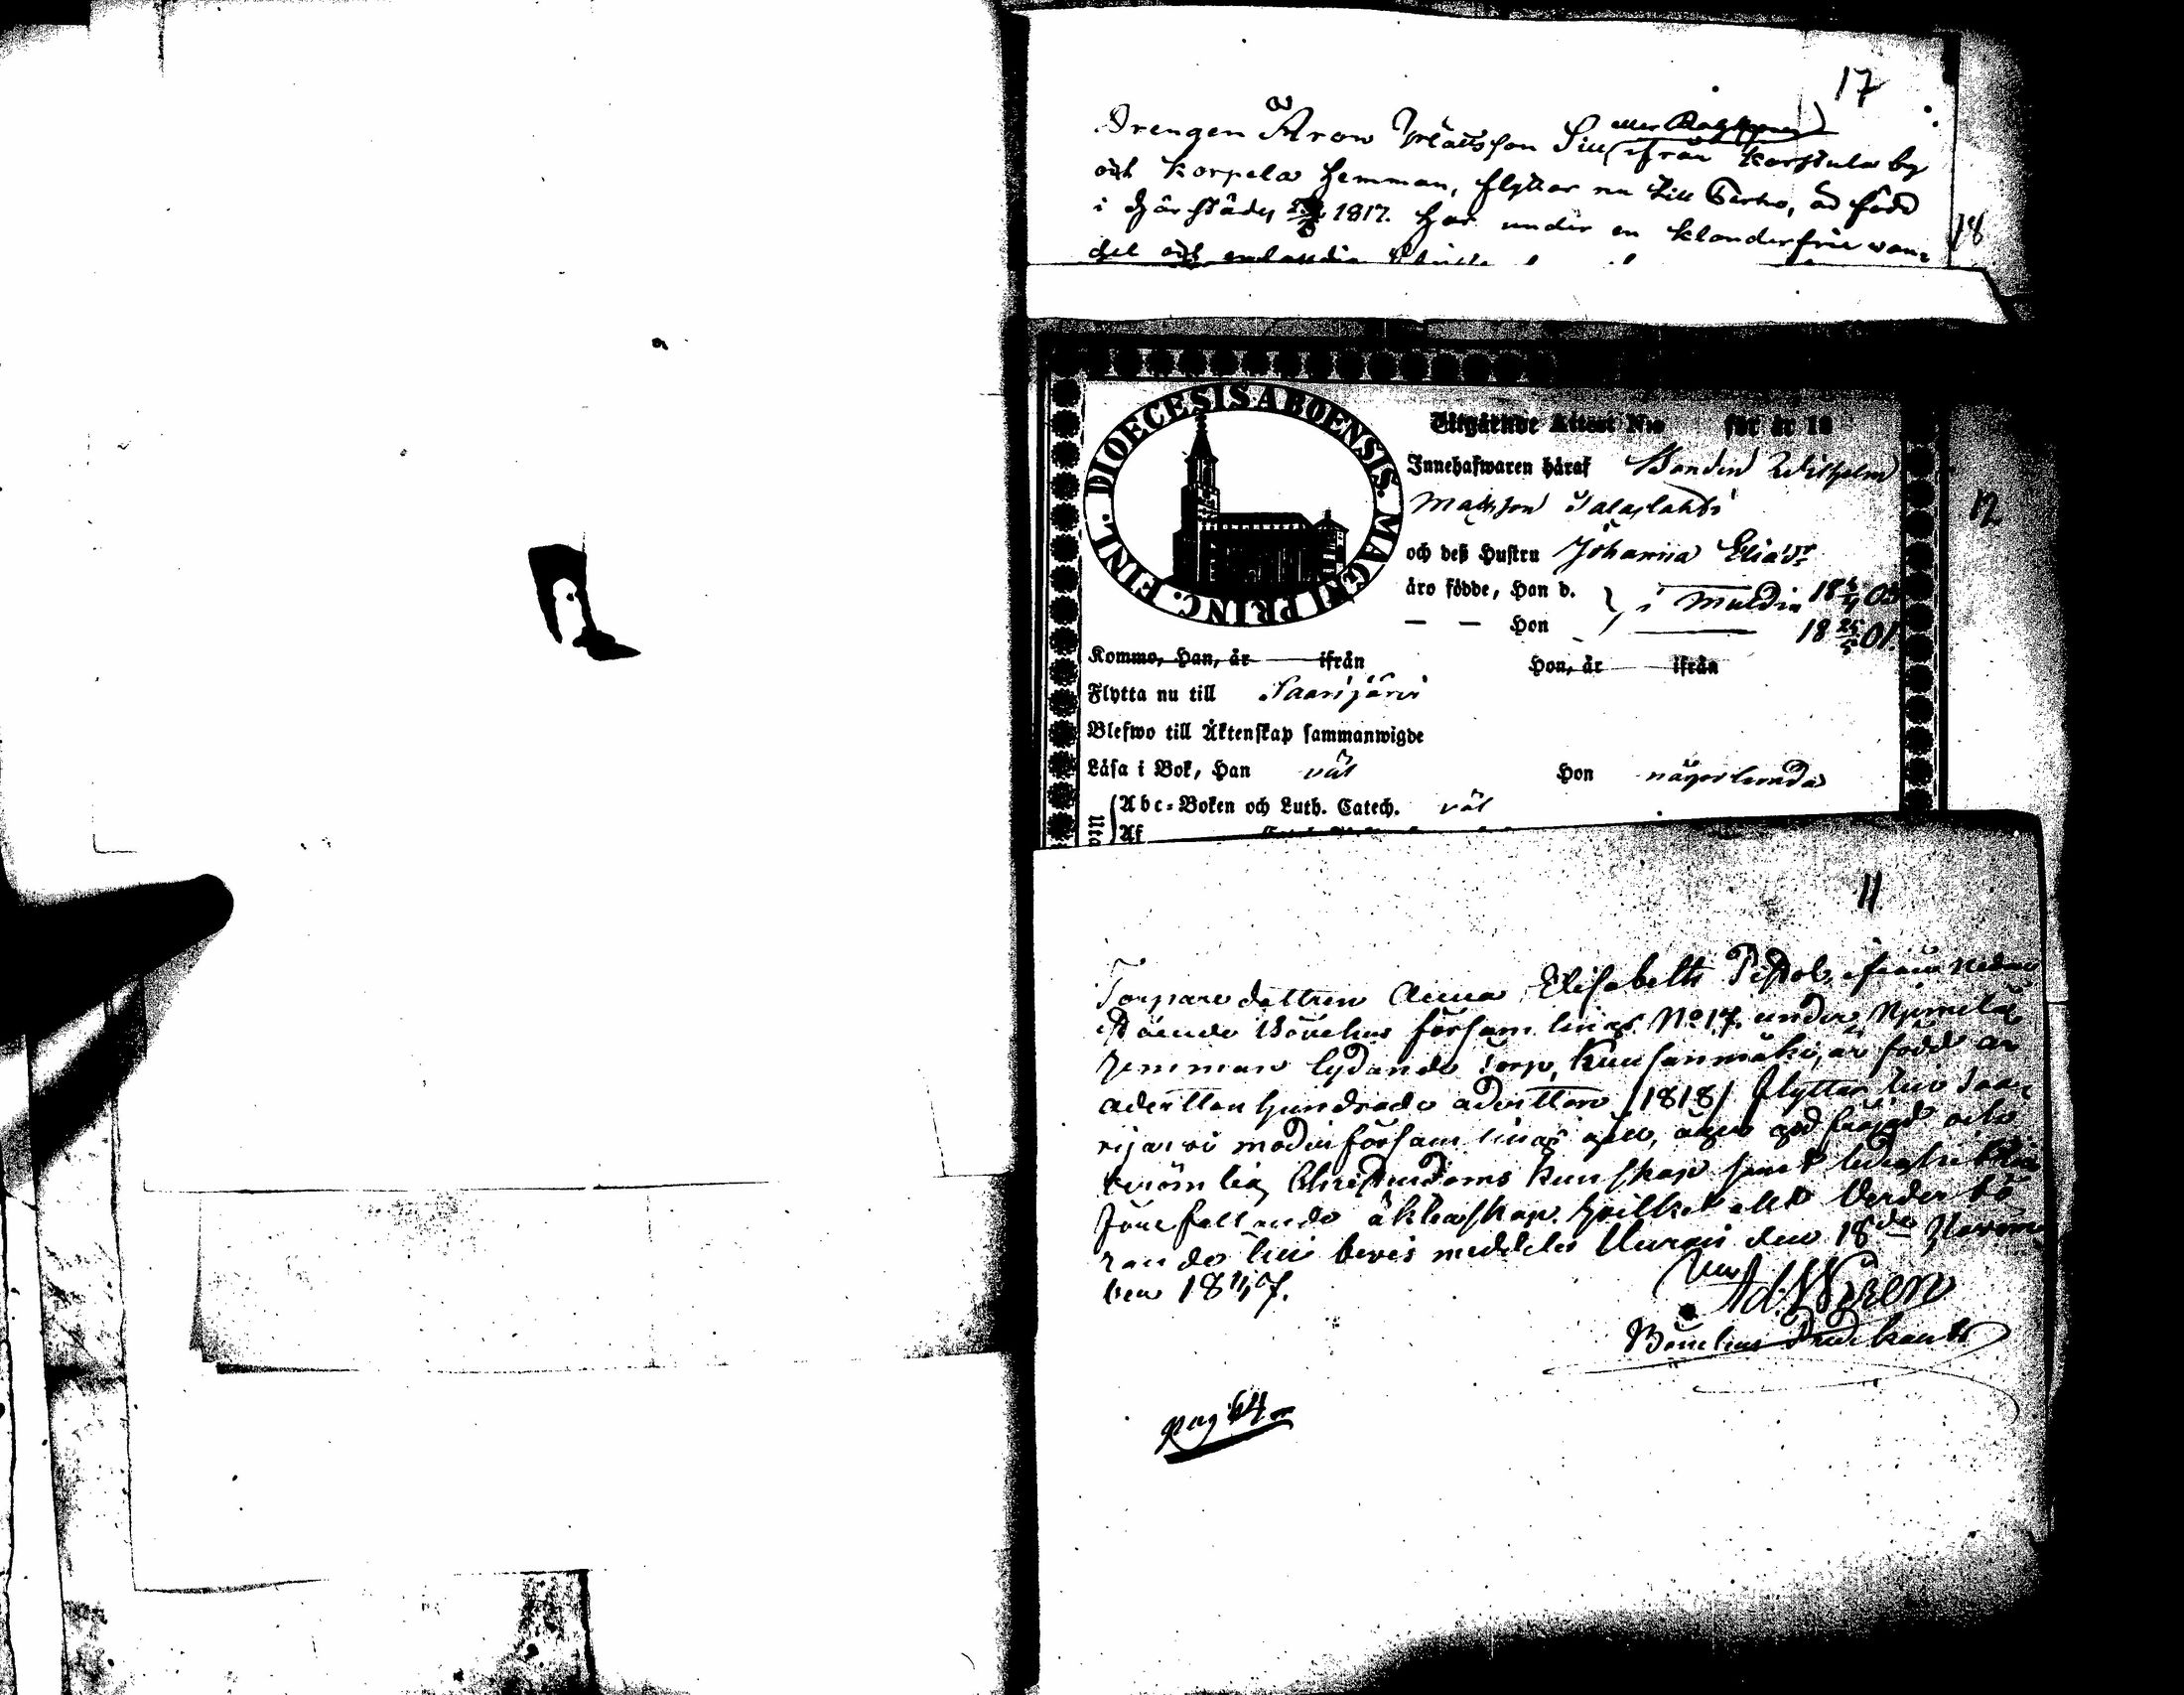 17
Drengen Aron Mattsson Sill ifrån Karstula by
och Korpela Hemman, flyttar nu till Perho, är född
i Gjärstädes 1817. Har under en klanderfrie wan-
del och
18
DIOECESIS ABOENSIS. MAGNI PRINC. FINL.
Utgående Attest N:o för år 18
Innehafwaren häraf Bonden Wilhelm
Matsson Salaslahti
och deß Hustru Johanna Eliaδ:r
äro födde, Han d. } i Muldia 18 03
— — Hon 18 01.
Kommo, Han, år ifrån Hon, år ifrån
Flytta nu till Saarijärvi
Blefwo till Äktenskap sammanwigde
Läsa i Bok, Han väl Hon någorlunda
Abc-Boken och Luth. Catech. väl
Af
12
11
Torpare dottren Anna Elisabeth ifrån nedan
stående Bönehus församlings No 17 under
Hemman lydande Torp, Kuusanmäki, är född år
adertton hundrade adertton /1818/ flyttar till Saa-
rijärvi moderförsamling åter, äger god frägd och
Christendoms kunskap samt ledig till
förefallande äktenskap. Hvilket allt vederbö
rande till bevis meddeles den 18de Novem
ber 1847.
Bönehus Predikant
pag 64